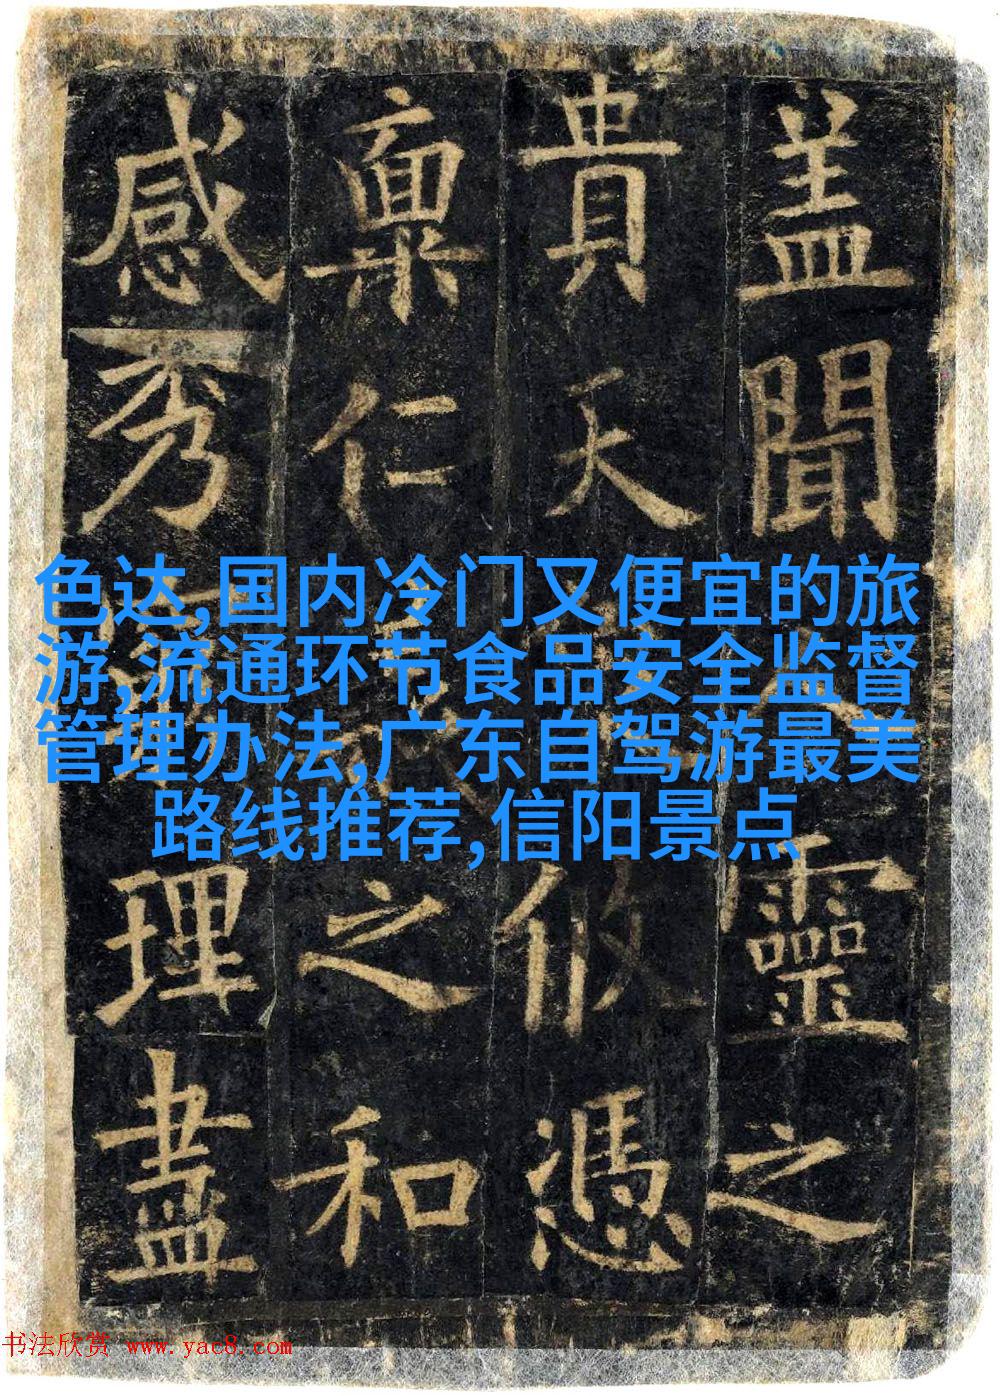 盖聞靈之
貴天攸憑
稟仁之和
感秀理盡
色达,国内冷门又便宜的旅
游,流通环节食品安全监督
管理办法,广东自驾游最美
路线推荐,信阳景点
书法欣赏 www.yac8.com